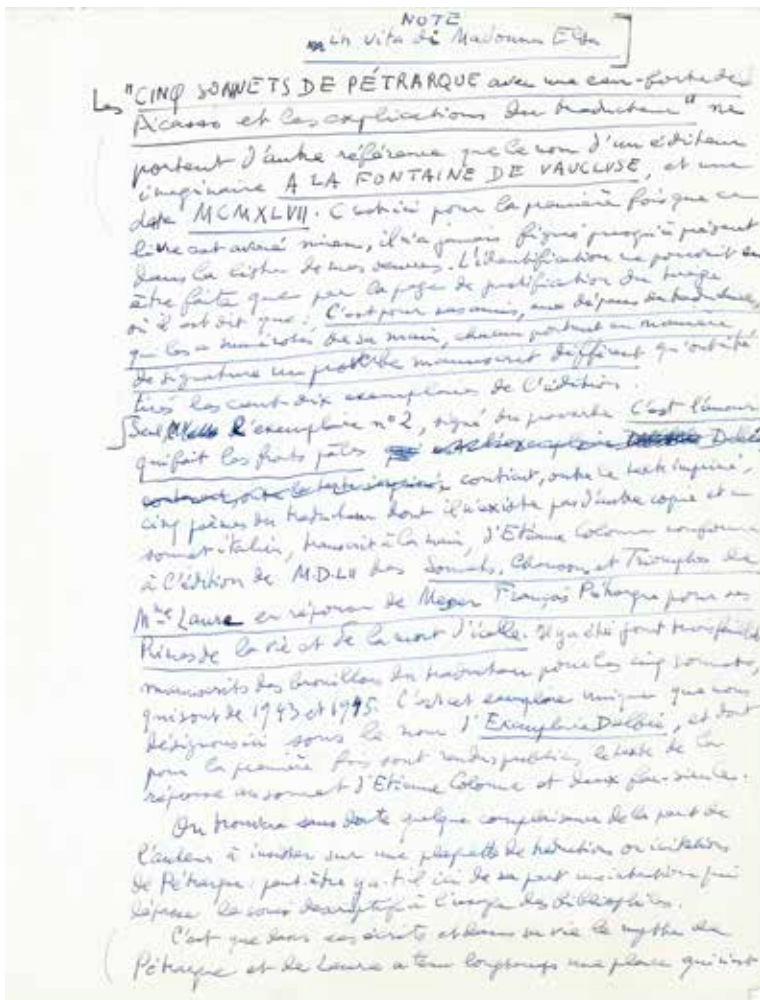 NOTE
in vita di Madonna Elsa
Les "CINQ SONNETS DE PÉTRARQUE avec une eau-forte de
Picasso et les explications du traducteur" ne
portent d'autre référence que le nom d'un éditeur
imaginaire A LA FONTAINE DE VAUCLUSE, et une
date MCMXLVII. C'est ici pour la première fois que ce
livre est avoué mien, il n'a jamais figuré jusqu'à présent
dans la liste de mes œuvres. L'identification ne pouvait en
être faite que par la page de justification du tirage
où il est dit que : C'est pour ses amis, aux dépens du traducteur,
qui les a numérotés de sa main, chacun portant en manière
de signature un proverbe manuscrit différent qu'ont été
tirés les cent-dix exemplaires de l'édition.
Seul l'exemplaire n°2, signé du proverbe C'est l'amour
qui fait les fronts pâles
contient, outre le texte imprimé,
cinq poèmes du traducteur dont il n'existe pas d'autre copie et un
sonnet italien, transcrit à la main, d'Etienne Colonna conforme
à l'édition de M.D.LII des Sonnets, Chansons et Triomphes de
Mme Laure en réponse de Messer François Pétrarque pour ses
Rimes de la vie et de la mort d'icelle. Il y a été joint trois feuillets
manuscrits des brouillons du traducteur pour les cinq sonnets,
qui sont de 1943 et 1945. C'est cet exemplaire unique que nous
désignons ici sous le nom d'Exemplaire Dalbié, et dont
pour la première fois sont rendus publics le texte de la
réponse au sonnet d'Etienne Colonna et deux fac-similé.
On trouvera sans doute quelque complaisance de la part de
l'auteur à insister sur une plaquette de traductions ou imitations
de Pétrarque : peut-être y a-t-il ici de sa part une intention qui
dépasse le souci descriptif à l'usage des bibliophiles.
C'est que dans ses écrits et dans sa vie le mythe de
Pétrarque et de Laure a tenu longtemps une place qui n'est